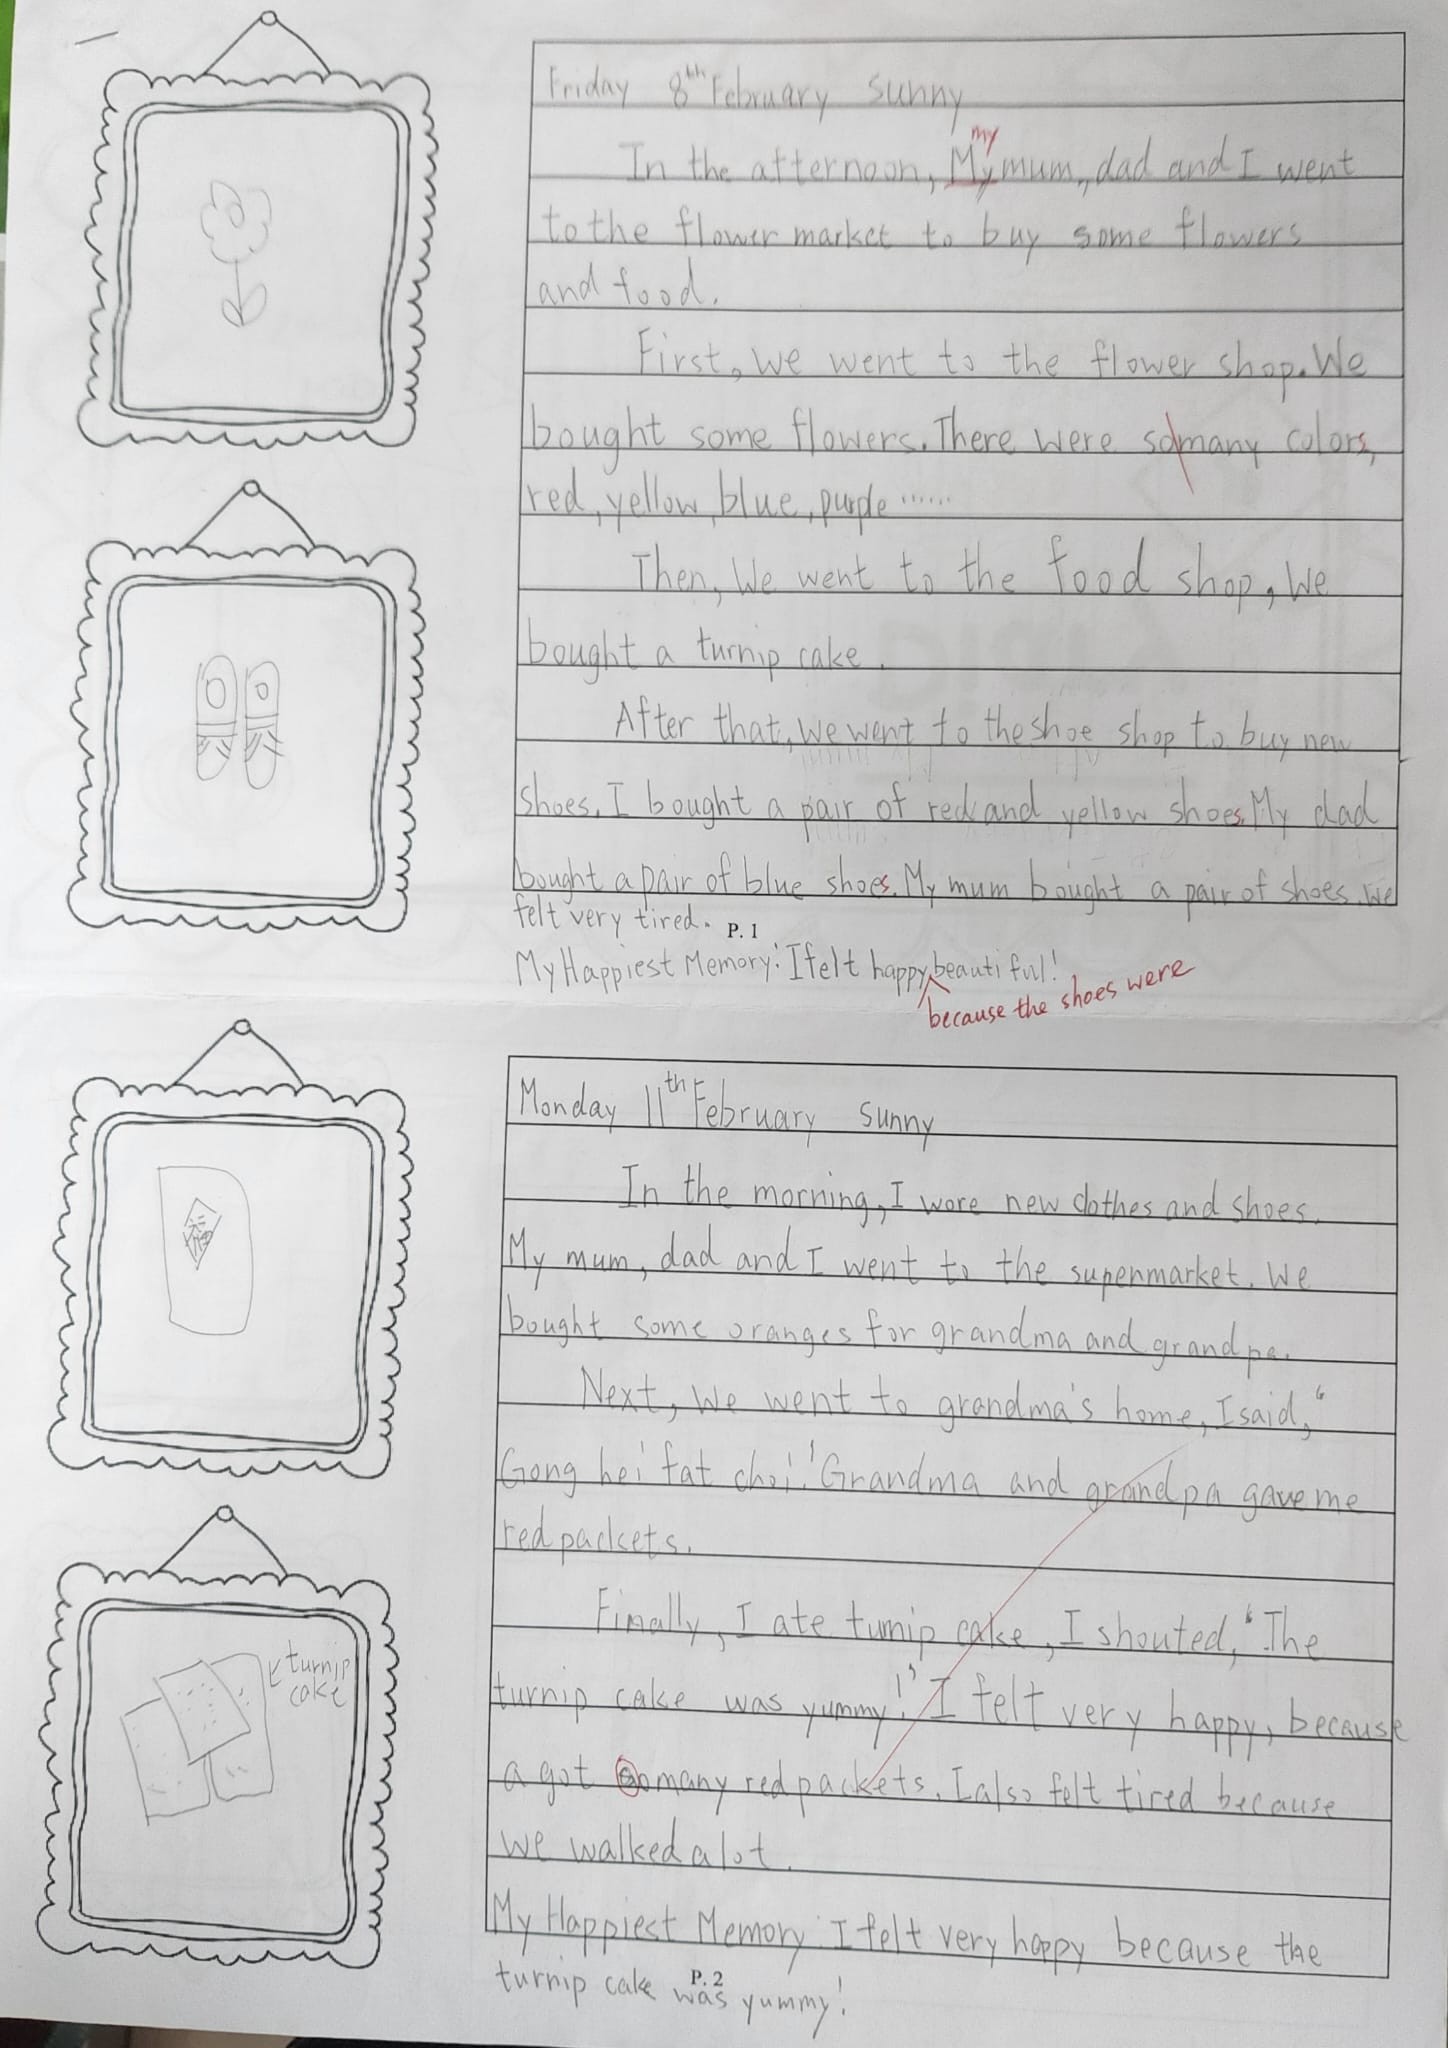 Friday 8th February sunny
my
In the afternoon, My mum, dad and I went
to the flower market to buy some flowers
and food.
First, We went to the flower shop. We
bought some flowers. There were so many colors,
red, yellow, blue, purple ......
Then, We went to the food shop, We
bought a turnip cake.
After that, We went to the shoe shop to buy new
shoes. I bought a pair of red and yellow shoes. My dad
bought a pair of blue shoes. My mum bought a pair of shoes. We
felt very tired.
P. 1
My Happiest Memory: I felt happy beautiful!
because the shoes were
Monday 11th February sunny
In the morning, I wore new clothes and shoes.
My mum, dad and I went to the supermarket. We
bought some oranges for grandma and grandpa.
Next, We went to grandma's home, I said, "
Gong hei fat choi!' Grandma and grandpa gave me
red packets.
turnip
cake
福
Finally, I ate turnip cake, I shouted, "The
turnip cake was yummy!" I felt very happy, because
a got so many red packets. I also felt tired because
we walked a lot.
My Happiest Memory: I felt very happy because the
turnip cake was yummy!
P. 2